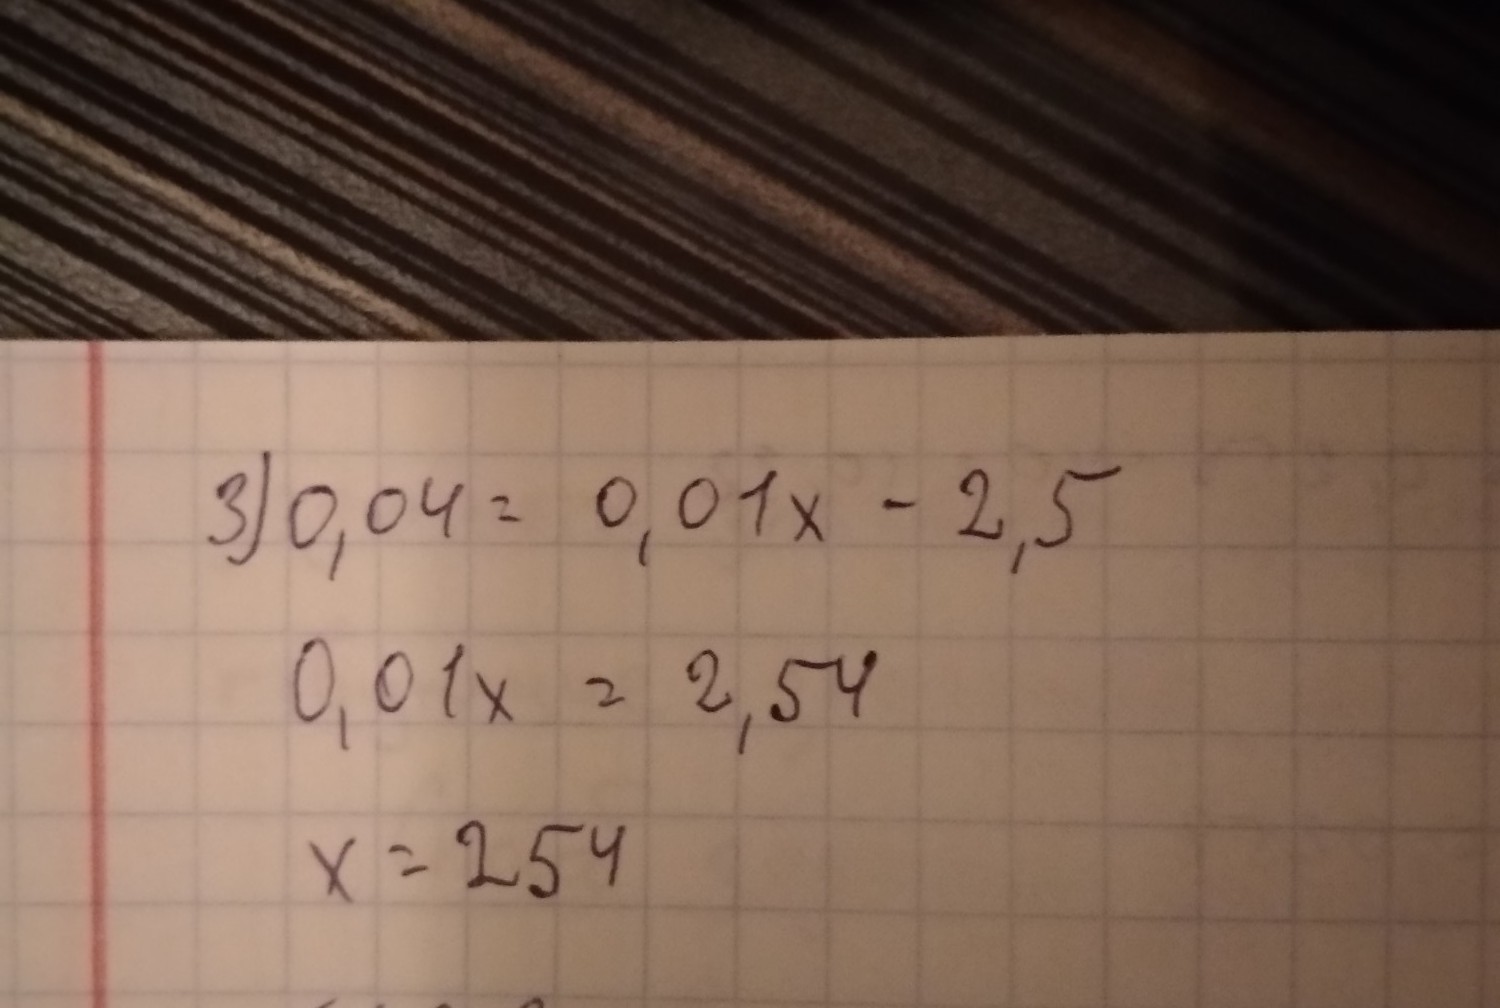 3) 0,04 = 0,01x - 2,5
0,01x = 2,54
x = 254